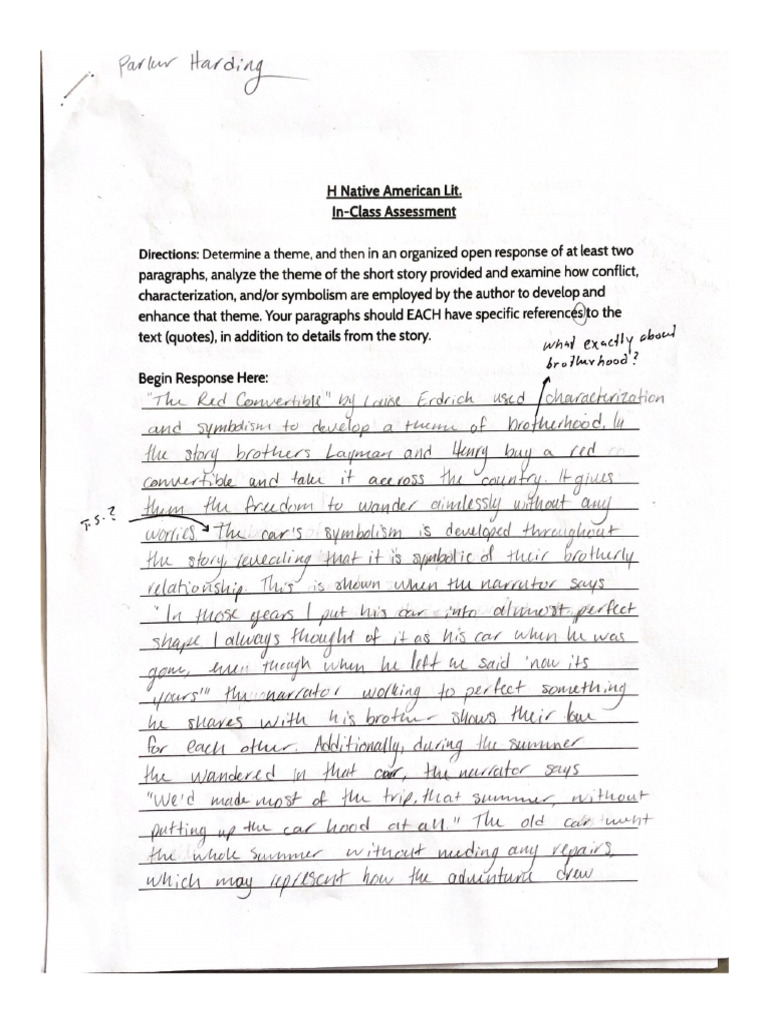 Parker Harding
H Native American Lit.
In-Class Assessment
Directions: Determine a theme, and then in an organized open response of at least two
paragraphs, analyze the theme of the short story provided and examine how conflict,
characterization, and/or symbolism are employed by the author to develop and
enhance that theme. Your paragraphs should EACH have specific references to the
text (quotes), in addition to details from the story.
what exactly about
brotherhood?
Begin Response Here:
"The Red Convertible" by Louise Erdrich used characterization
and symbolism to develop a theme of brotherhood. In
the story brothers Layman and Henry buy a red
convertible and take it accross the country. It gives
them the freedom to wander aimlessly without any
T.S.?
worries. The car's symbolism is developed throughout
the story, revealing that it is symbolic of their brotherly
relationship. This is shown when the narrator says
"In those years I put his car into almost perfect
shape I always thought of it as his car when he was
gone, even though when he left he said 'now its
yours'" the narrator working to perfect something
he shares with his brother shows their love
for each other. Additionally, during the summer
the wandered in that car, the narrator says
"We'd made most of the trip, that summer, without
putting up the car hood at all." The old car went
the whole summer without needing any repairs,
which may represent how the adventure drew